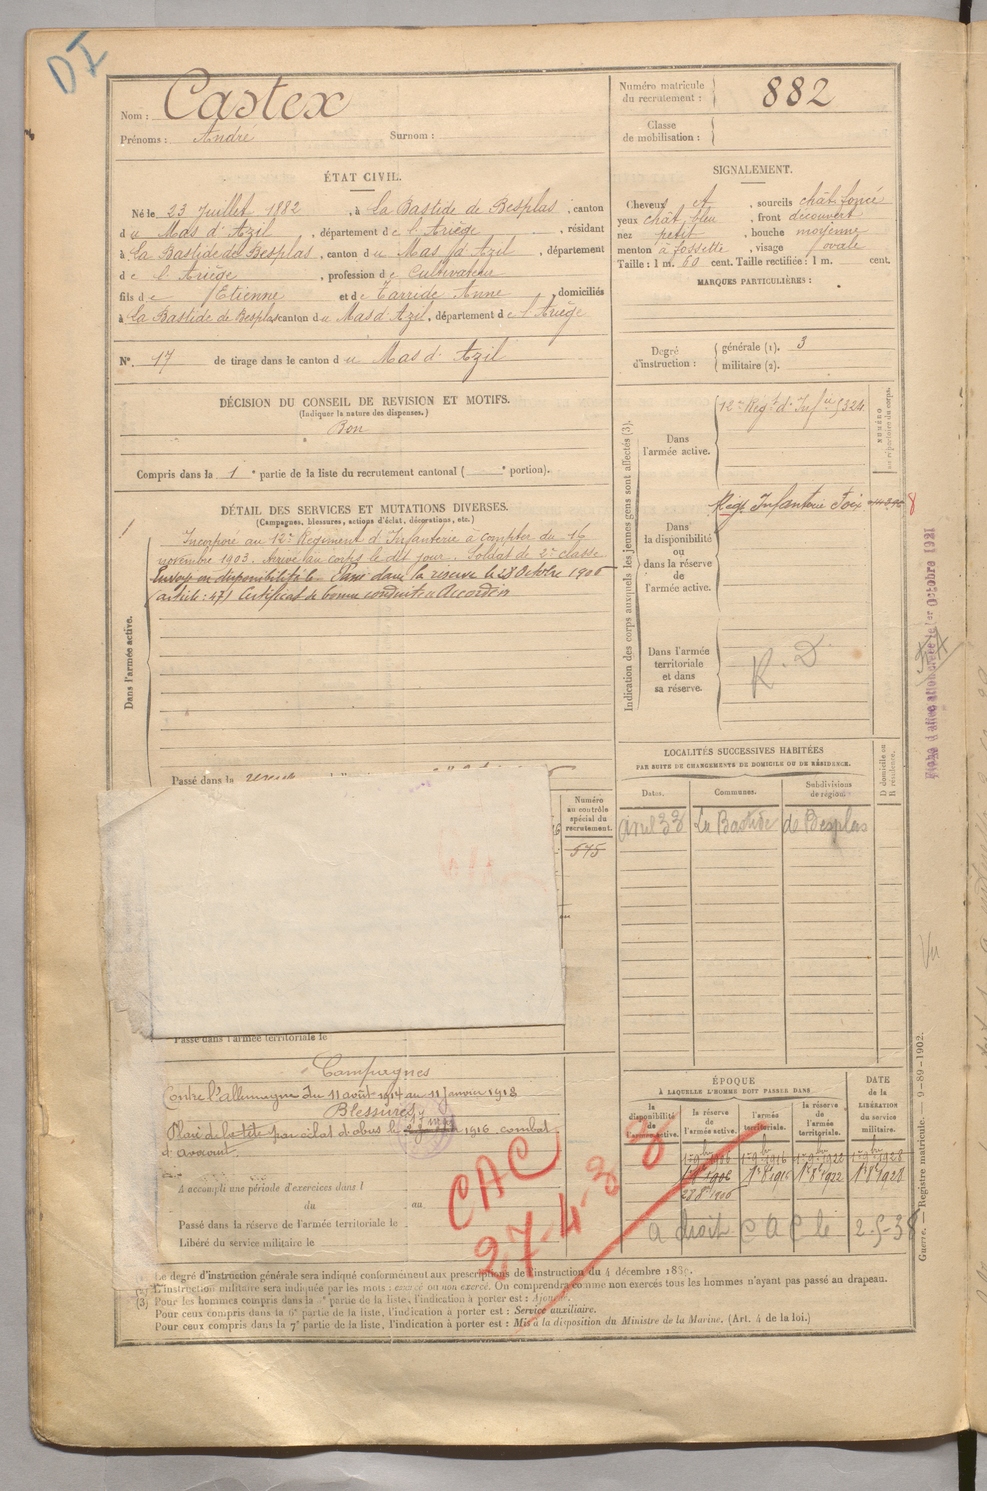 DI
Nom : Castex
Prénoms : André Surnom :
Numéro matricule du recrutement : 882
Classe de mobilisation :
ÉTAT CIVIL.
Né le 23 Juillet 1882, à La Bastide de Besplas, canton
du Mas d'Azil, département de l'Ariège, résidant
à La Bastide de Besplas, canton du Mas d'Azil, département
de l'Ariège, profession de Cultivateur
fils de Etienne et de Tarride Anne, domiciliés
à La Bastide de Besplas canton du Mas d'Azil, département de l'Ariège
N°. 17 de tirage dans le canton du Mas d'Azil
DÉCISION DU CONSEIL DE REVISION ET MOTIFS.
(Indiquer la nature des dispenses.)
Bon
Compris dans la 1e partie de la liste du recrutement cantonal ( e portion).
DÉTAIL DES SERVICES ET MUTATIONS DIVERSES.
(Campagnes, blessures, actions d'éclat, décorations, etc.)
Dans l'armée active.
Incorporé au 12e Régiment d'Infanterie à compter du 16
novembre 1903. Arrivé au corps le dit jour. Soldat de 2e classe
Envoyé en disponibilité le Passé dans la réserve le 28 Octobre 1906
article : 471 Certificat de bonne conduite "Accordé"
Passé dans la réserve
Numéro au contrôle spécial du recrutement.
575
Passé dans l'armée territoriale le
Campagnes
Contre l'allemagne du 11 août 1914 au 11 Janvier 1918
Blessures
Plaie de la tête par éclat d'obus le 1916 combat
d'avocourt.
A accompli une période d'exercices dans l
du au
Passé dans la réserve de l'armée territoriale le
Libéré du service militaire le
SIGNALEMENT.
Cheveux et, sourcils chât foncé
yeux chât bleu, front découvert
nez petit, bouche moyenne
menton à fossette, visage ovale
Taille : 1 m. 60 cent. Taille rectifiée : 1 m. cent.
MARQUES PARTICULIÈRES :
Degré d'instruction : générale (1). 3
militaire (2).
Indication des corps auxquels les jeunes gens sont affectés (3).
NUMÉRO au répertoire du corps.
Dans l'armée active.
12e Regt d'Infie 5324
Dans la disponibilité ou dans la réserve de l'armée active.
Régt Infanterie Foix
8
Dans l'armée territoriale et dans sa réserve.
R. D.
LOCALITÉS SUCCESSIVES HABITÉES
PAR SUITE DE CHANGEMENTS DE DOMICILE OU DE RÉSIDENCE.
D domicile ou R résidence.
Dates. Communes. Subdivisions de région.
avril 33 La Bastide de Besplas
ÉPOQUE
À LAQUELLE L'HOMME DOIT PASSER DANS
DATE de la LIBÉRATION du service militaire.
la disponibilité de l'armée active. la réserve de l'armée active. l'armée territoriale. la réserve de l'armée territoriale.
1er 9bre 1906 1er 9bre 1916 1er 9bre 1922 1er 9bre 1928
1er 8e 1906 1er 8e 1916 1er 8e 1922 1er 8e 1928
28 8e 1906
a droit CAC le 2-5-38
CAC
27-4-38
Le degré d'instruction générale sera indiqué conformément aux prescriptions de l'instruction du 4 décembre 1889.
L'instruction militaire sera indiquée par les mots : exercé ou non exercé. On comprendra comme non exercés tous les hommes n'ayant pas passé au drapeau.
(3) Pour les hommes compris dans la 5e partie de la liste, l'indication à porter est : Ajourné.
Pour ceux compris dans la 6e partie de la liste, l'indication à porter est : Service auxiliaire.
Pour ceux compris dans la 7e partie de la liste, l'indication à porter est : Mis à la disposition du Ministre de la Marine. (Art. 4 de la loi.)
Guerre. — Registre matricule. — 9-89-1902.
Octobre 1921
Vu